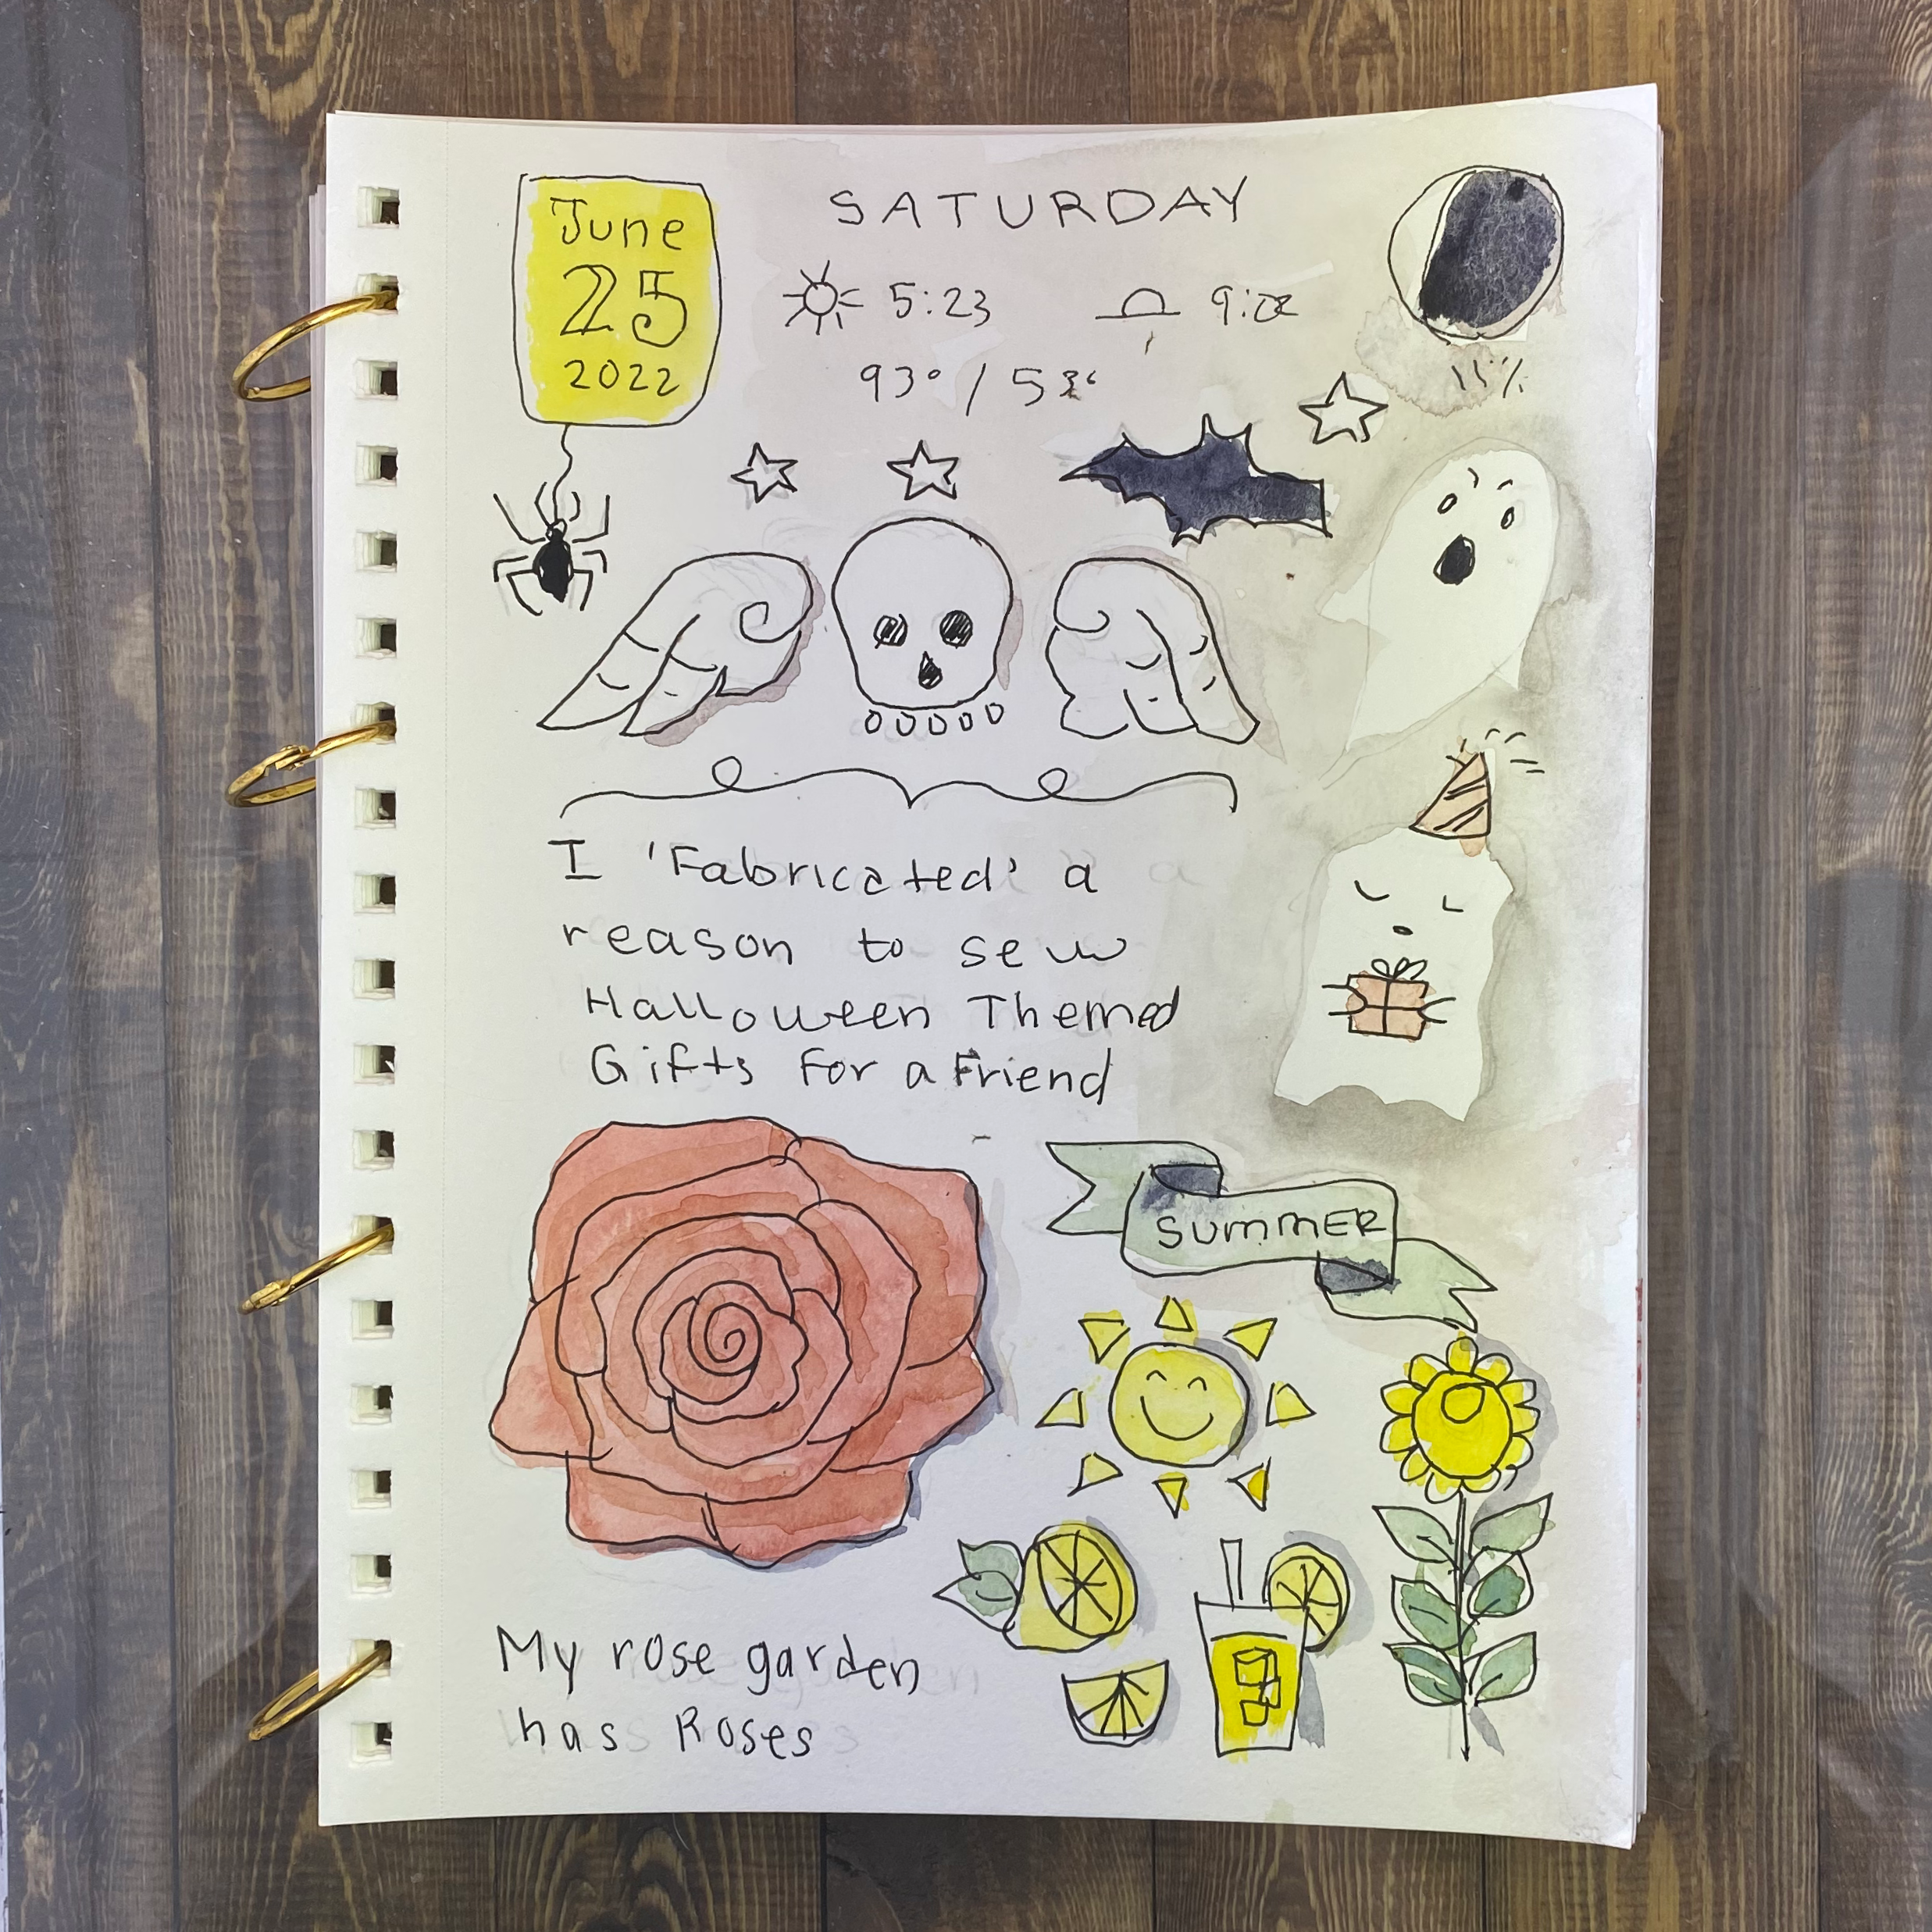 June
25
2022
SATURDAY
5:23
93° /
I 'Fabricated' a
reason to sew
Halloween Themed
Gifts For a Friend
SUMMER
My rose garden
has Roses